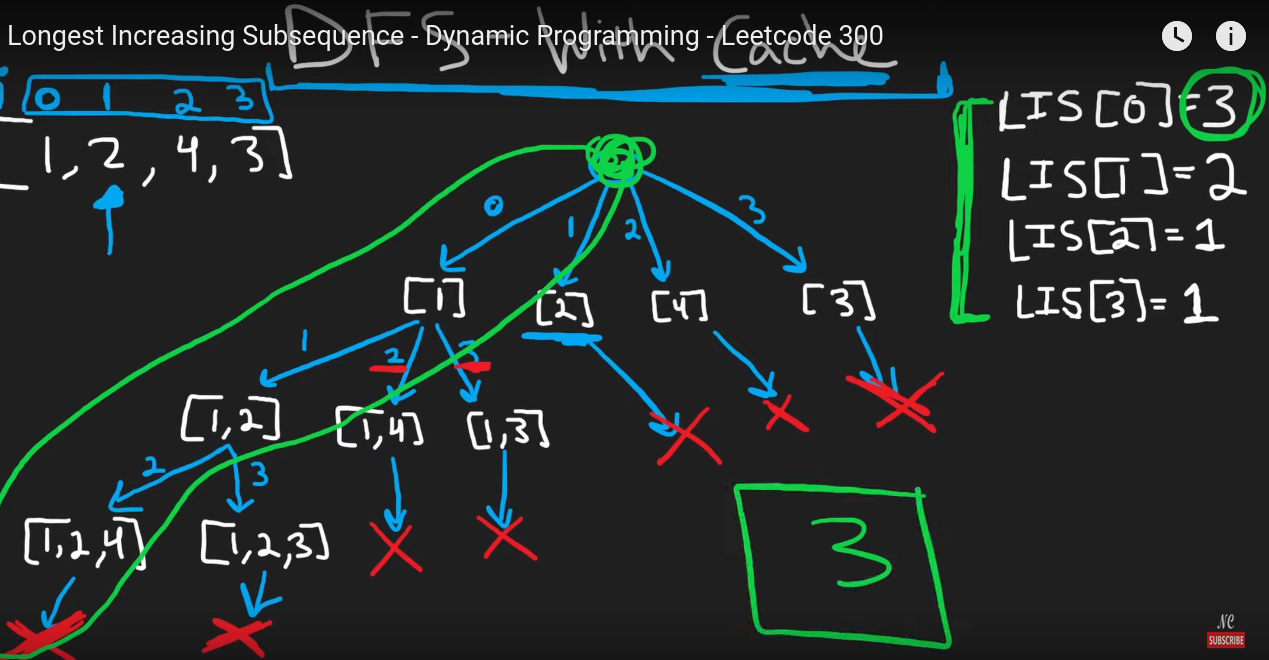 Longest Increasing Subsequence - Dynamic Programming - Leetcode 300
DFS - With Cache
i 0 1 2 3
[1, 2, 4, 3]
LIS[0]=3
LIS[1]=2
LIS[2]=1
LIS[3]=1
0 1 2 3
[1] [2] [4] [3]
1 2 3
[1,2] [1,4] [1,3]
2 3
[1,2,4] [1,2,3]
3
NC
SUBSCRIBE